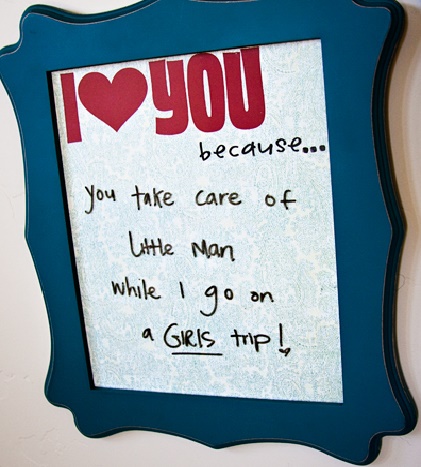 I ♥ YOU
because...
you take care of
little Man
while I go on
a GIRLS trip!